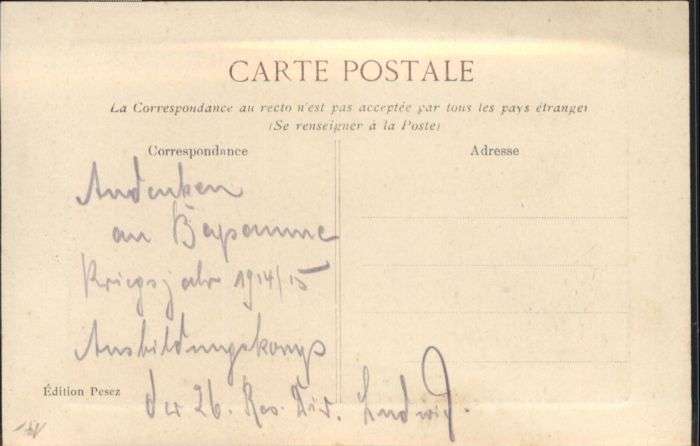 CARTE POSTALE
La Correspondance au recto n'est pas acceptée par tous les pays étranger
(Se renseigner à la Poste)
Correspondance
Adresse
Andenken
an Bapaume
Kriegsjahr 1914/15
Ausbildungskomp
der 26. Res. Div. Ludwig.
Édition Pesez